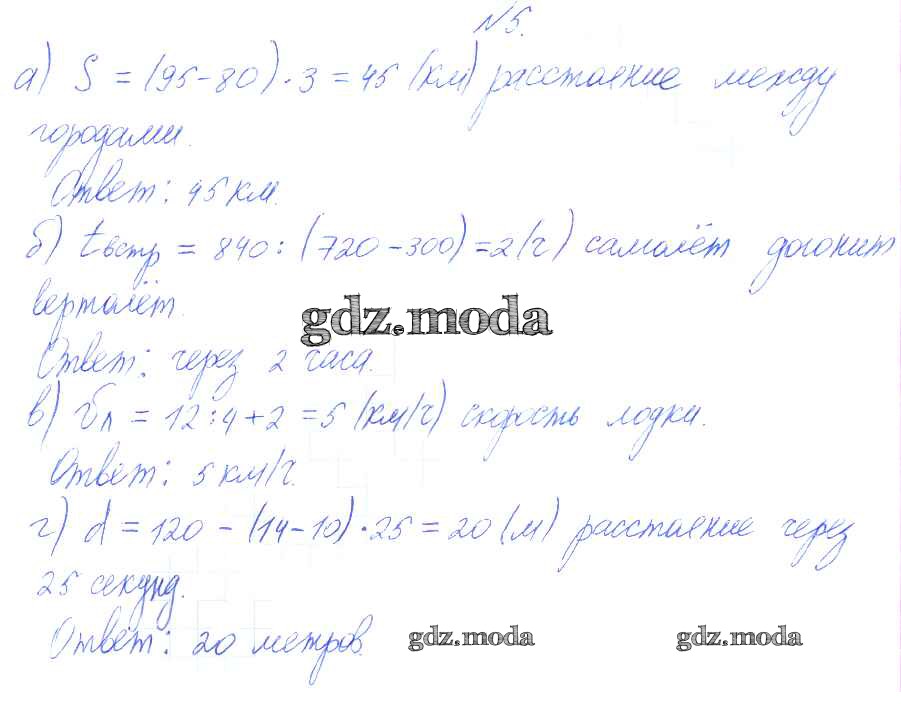 №5.
а) S = (95-80)·3 = 45 (км) расстояние между
городами.
Ответ: 45 км.
б) tвстр = 840:(720-300)=2(ч) самолёт догонит
вертолёт.
gdz.moda
Ответ: через 2 часа.
в) Vл = 12:4+2=5 (км/ч) скорость лодки.
Ответ: 5 км/ч.
г) d = 120 - (14-10)·25 = 20 (м) расстояние через
25 секунд.
Ответ: 20 метров.
gdz.moda gdz.moda